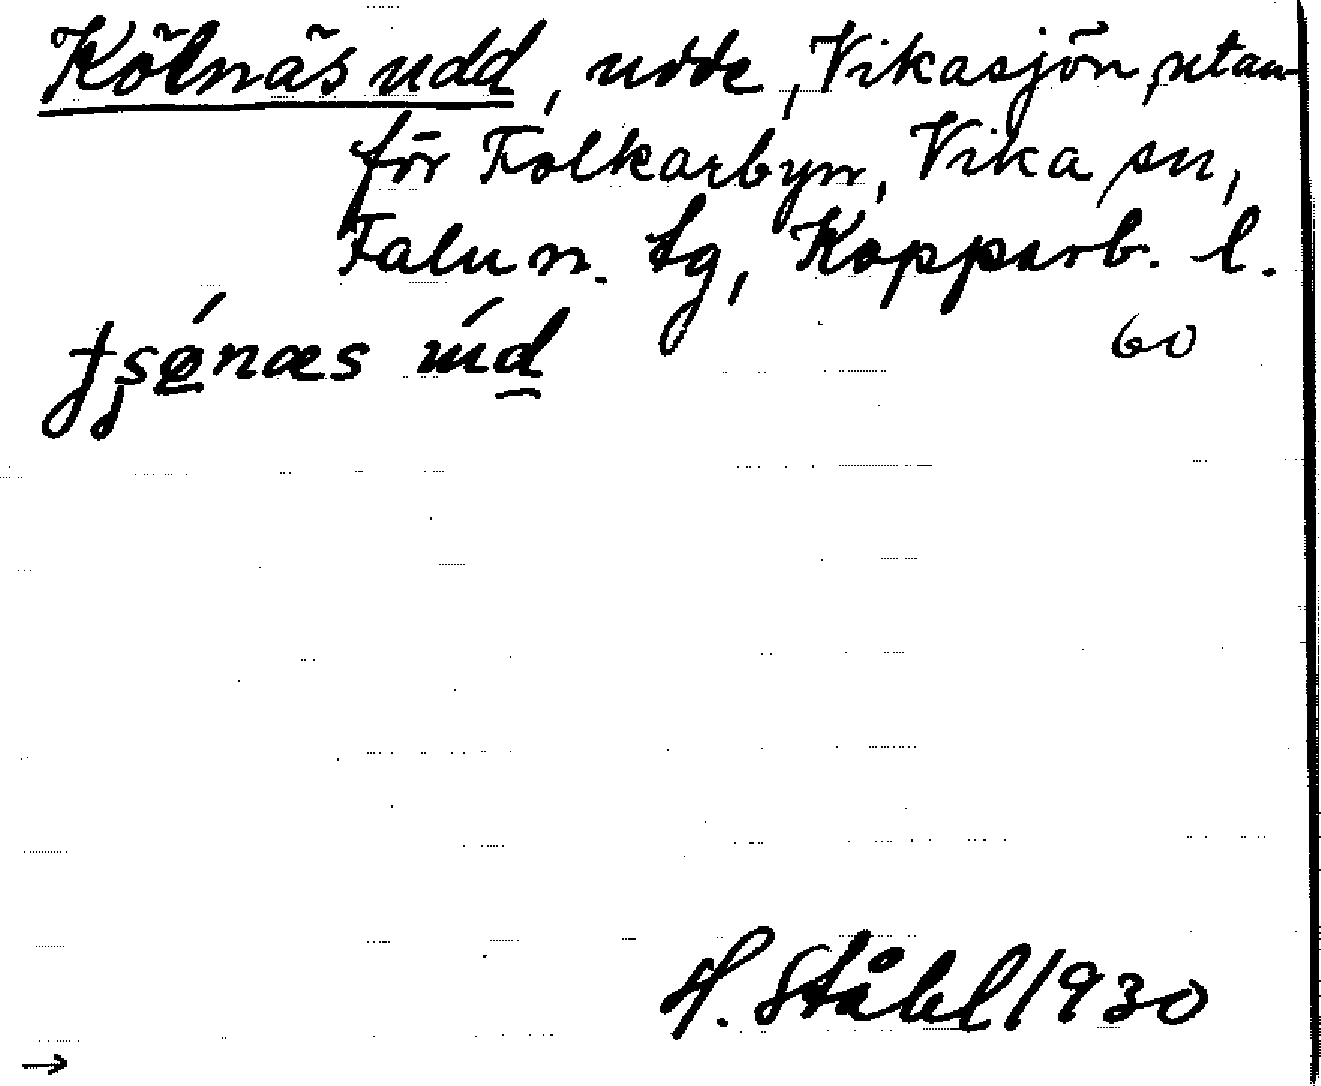 Kölnäs udd, udde, Vikasjön, utan-
för Folkarbyn, Vika sn,
Falu n. tg, Kopparb. l.
60
H. Ståhl 1930
→